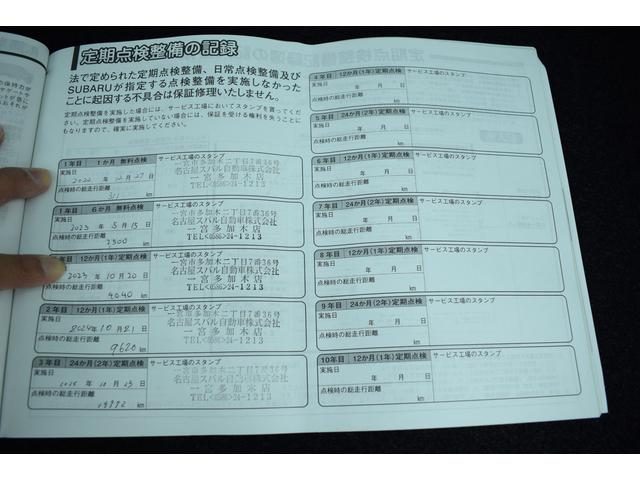 定期点検整備の記録
法で定められた定期点検整備、日常点検整備及び
SUBARUが指定する点検整備を実施しなかった
ことに起因する不具合は保証修理いたしません。
定期点検整備を実施した場合には、サービス工場においてスタンプを貰ってくだ
さい。定期点検整備を実施していない場合には、保証を受ける権利を失うことに
もなりますので、確実に実施してください。
1年目 1か月 無料点検 サービス工場のスタンプ
実施日
2022年12月27日
点検時の総走行距離
311 km
一宮市多加木二丁目7番36号
名古屋スバル自動車株式会社
一宮多加木店
TEL<0586>24-1213
1年目 6か月 無料点検 サービス工場のスタンプ
実施日
2023年5月15日
点検時の総走行距離
2300 km
一宮市多加木二丁目7番36号
名古屋スバル自動車株式会社
一宮多加木店
TEL<0586>24-1213
年目 12か月(1年)定期点検 サービス工場のスタンプ
2023年10月20日
点検時の総走行距離
4040 km
一宮市多加木二丁目7番36号
名古屋スバル自動車株式会社
一宮多加木店
TEL<0586>24-1213
2年目 12か月(1年)定期点検 サービス工場のスタンプ
実施日
2024年10月21日
点検時の総走行距離
9620 km
一宮市多加木二丁目7番36号
名古屋スバル自動車株式会社
一宮多加木店
TEL<0586>24-1213
3年目 24か月(2年)定期点検 サービス工場のスタンプ
実施日
年10月 日
点検時の総走行距離
km
一宮市多加木二丁目7番36号
名古屋スバル自動車株式会社
一宮多加木店
TEL<0586>24-1213
4年目 12か月(1年)定期点検 サービス工場のスタンプ
実施日
年 月 日
点検時の総走行距離
km
5年目 24か月(2年)定期点検 サービス工場のスタンプ
実施日
年 月 日
点検時の総走行距離
km
6年目 12か月(1年)定期点検 サービス工場のスタンプ
実施日
年 月 日
点検時の総走行距離
km
7年目 24か月(2年)定期点検 サービス工場のスタンプ
実施日
年 月 日
点検時の総走行距離
km
8年目 12か月(1年)定期点検 サービス工場のスタンプ
実施日
年 月 日
点検時の総走行距離
km
9年目 24か月(2年)定期点検 サービス工場のスタンプ
実施日
年 月 日
点検時の総走行距離
km
10年目 12か月(1年)定期点検 サービス工場のスタンプ
実施日
年 月 日
点検時の総走行距離
km